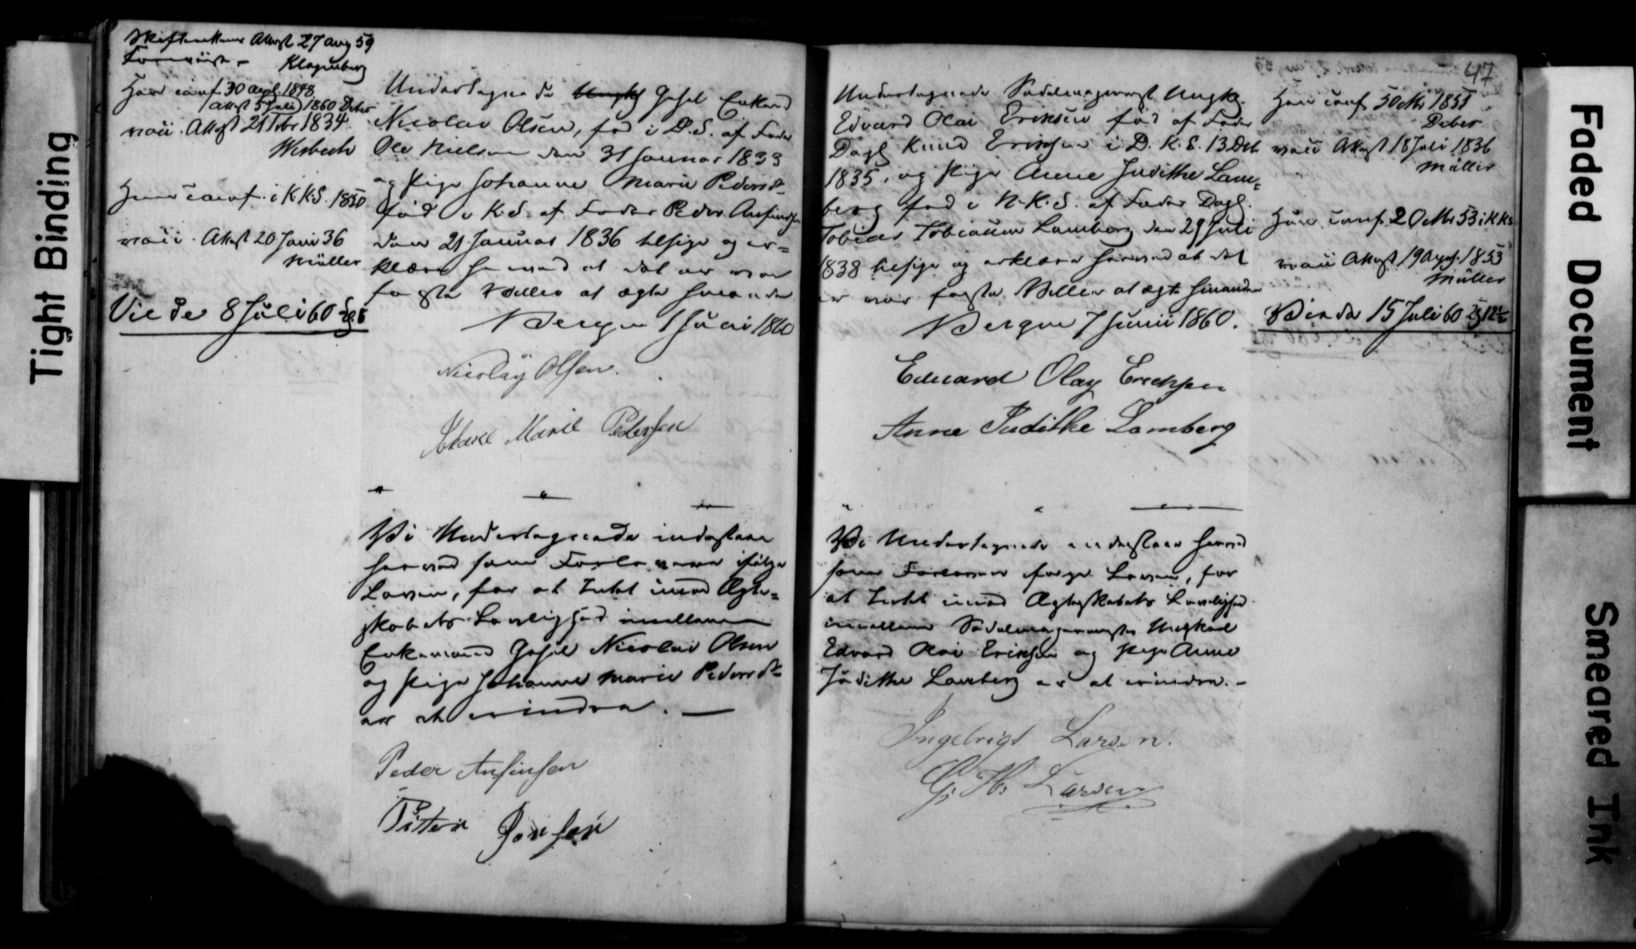 Skifteattest Attest 27 aug 59
Klagenberg
Han conf. 30 April 1848
Attest 5 Juli 1860 Deber
vacc. Attest 21 Febr 1834
Wesbech
Hun conf. i K.K.S. 1850
vacc. Attest 20 Juni 36
Müller
Vie de 8 Juli 60
Undertegnede Ungk Gesel Enkemd
Nicolai Olsen, fød i D.S. af Fader
Ole Nielsen den 31 Januar 1833
og Pige Johanne Marie Pedersdr
fød i K.S. af Fader Peder Ansinsen
den 21 Januar 1836 tilsige og er=
klære herved at det er vor
faste Villie at ægte hinanden
Bergen 1 Juni 1860
Nicolay Olsen.
Marie Pedersen
Vi Undertegnede indestaae
herved som Forlovere ifølge
Loven, for at Intet imod Ægte=
skabets Lovlighed imellem
Enkemand Gesel Nicolai Olsen
og Pige Johanne Marie Pedersdr
er at erindre. —
Peder Ansinsen
Petter Jonsen
47
Undertegnede Sadelmagermst Ungk.
Edvard Olai Eriksen fød af Fader
Dagl Knud Eriksen i D.K.S. 13 Oct
1835, og Pige Anne Judithe Lam=
berg fød i N.K.S. af Fader Dagl.
Tobias Tobiasen Lamberg den 29 Juli
1838 tilsige og erklære herved at det
er vor faste Villie at ægte hinanden
Bergen 7 Junii 1860.
Eduard Olay Erechsen
Anne Judithe Lamberg
Vi Undertegnede indestaae herved
som Forlovere ifølge Loven, for
at Intet imod Ægteskabets Lovlighed
imellem Sadelmagermester Ungkarl
Edvard Olai Eriksen og Pige Anne
Judithe Lamberg er at erindre. —
Ingebrigt Larsen.
G. Hs. Larsen
Han conf. 5 Octbr 1851
Deber
vacc Attest 18 Juli 1836
Müller
Hun conf. 2 Octbr 53 i KKs
vacc Attest 19 Aug 1853
Müller
Vie de 15 Juli 60
Tight Binding
Faded Document
Smeared Ink